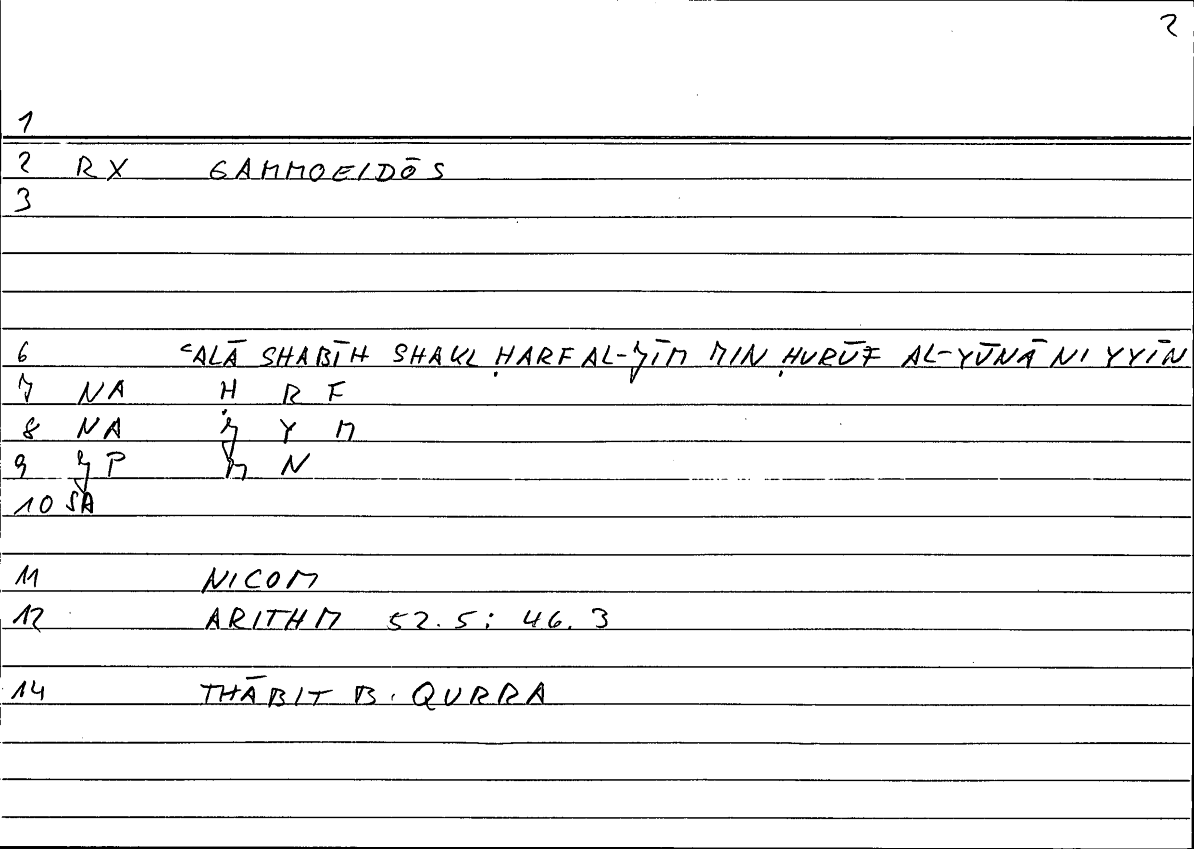 2
1
2 RX GAMMOEIDŌS
3
6 ʿALĀ SHABĪH SHAKL ḤARF AL-JĪM MIN ḤURŪF AL-YŪNĀNIYYĪN
7 NA Ḥ R F
8 NA J Y M
9 N
10 SA
11 NICOM
12 ARITHM 52.5; 46.3
14 THĀBIT B. QURRA